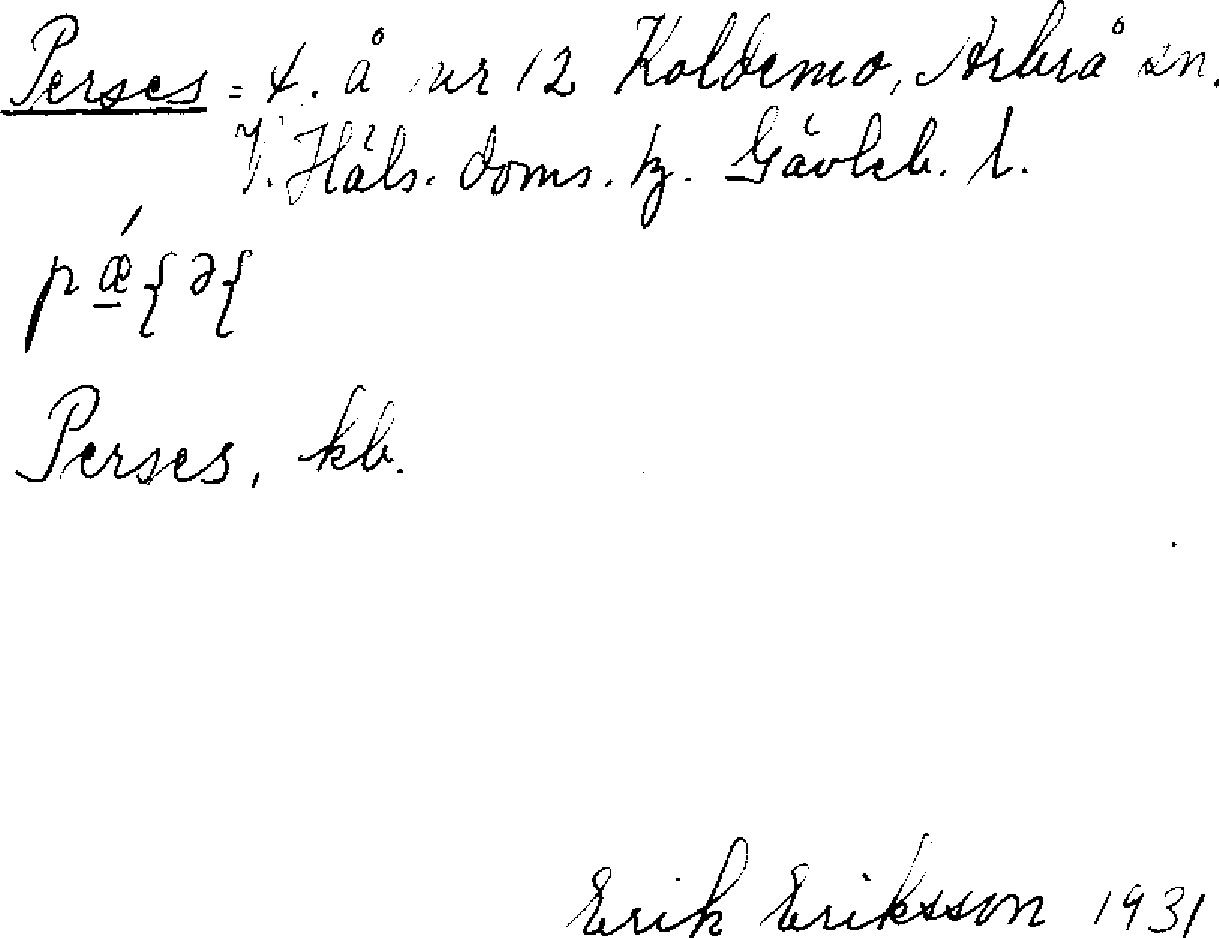 Perses = t. å nr 12 Koldemo, Arbrå sn.
V. Häls. doms. tz. Gävleb. l.
pǽ{ə{
Perses, kb.
Erik Eriksson 1931